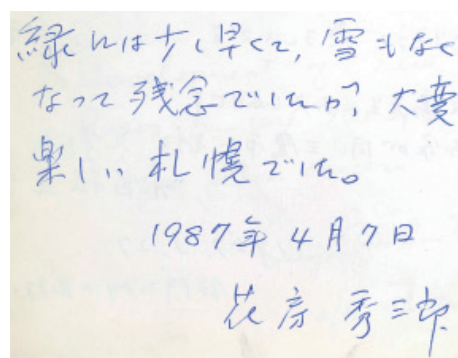 緑には少し早くて、雪もなく
なって残念でしたが、大変
楽しい札幌でした。
1987年4月7日
花房秀三郎